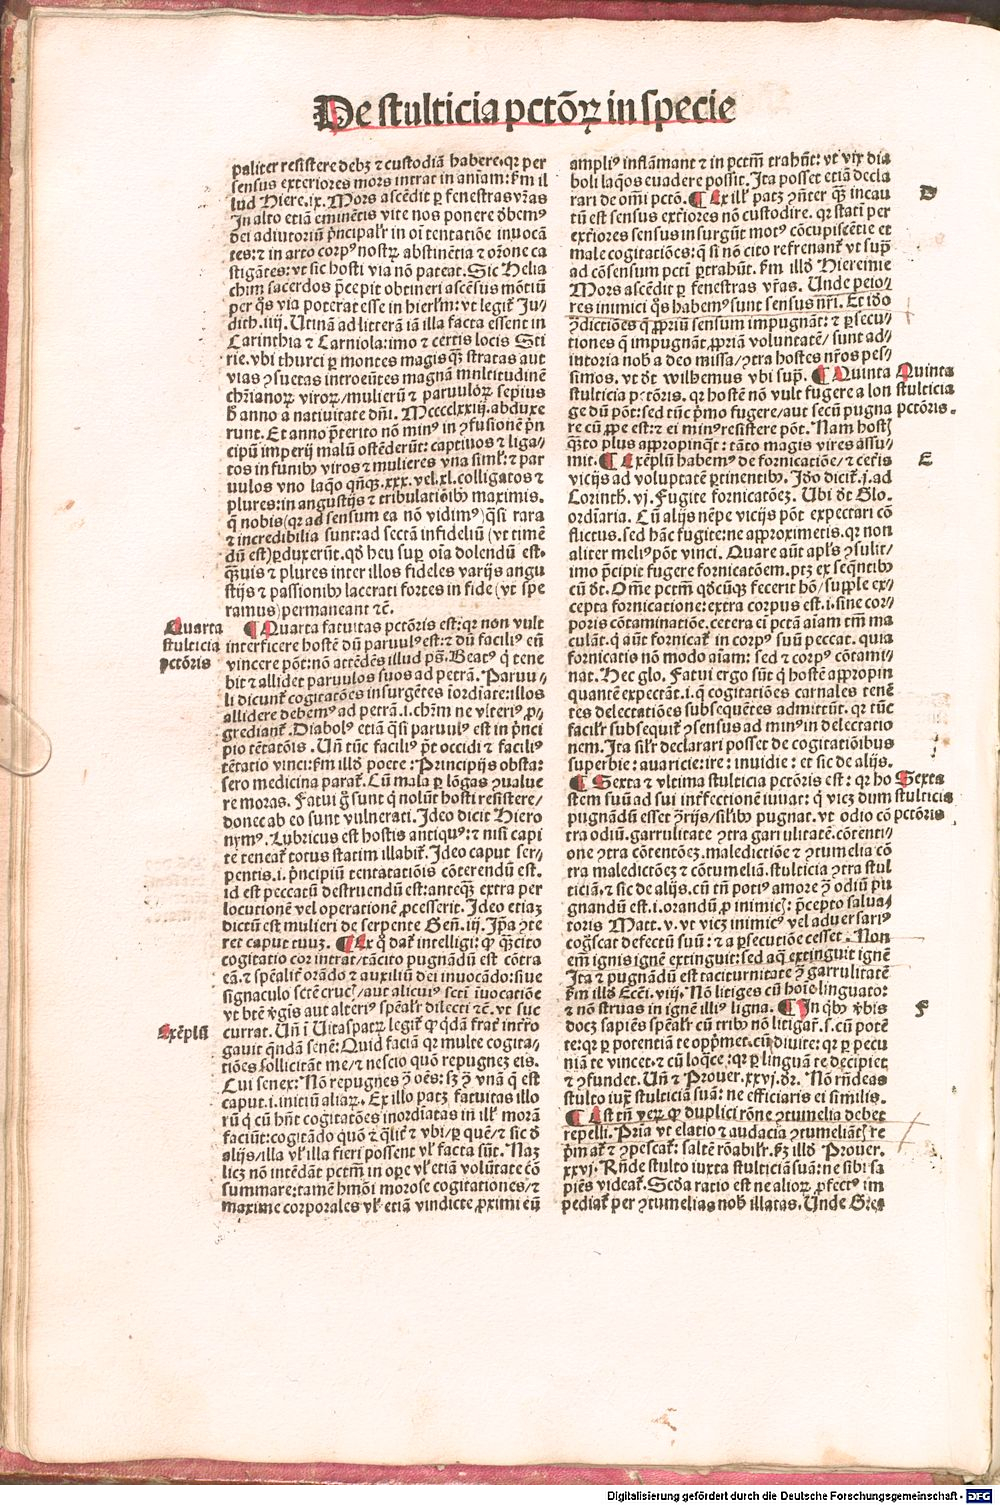 De stulticia pctōꝝ in specie
paliter resistere debꝫ ⁊ custodiā habere. qꝛ per
sensus exteriores mors intrat in aniam: ẜm il
lud Hiere. ix. Mors ascēdit ꝑ fenestras vr̄as
In alto etiā eminētis vite nos ponere ꝺbemꝰ
dei adiutoriū pͥncipalr̄ in oī tentatiōe inuocā
tes: ⁊ in arto corpꝰ nostꝝ abstinētia ⁊ or̄one ca
stigātes: vt sic hosti via nō pateat. Sic Helia
chim sacerdos pͥcepit obtineri ascēsus mōtiū
per qͦs via poterat esse in hierlm̄: vt legit̄ Ju/
dith. iiij. Utinā ad litterā iā illa facta essent in
Carinthia ⁊ Carniola: imo ⁊ certis locis Sti
rie. vbi thurci ꝑ montes magisqꝫ stratas aut
vias ↄsuetas introeūtes magnā mltitudinē
chr̄ianoꝝ viroꝝ/mulierū ⁊ paruuloꝝ sepius
ꝺ anno a natiuitate dn̄i. Mccccclxxiij. abduxe
runt. Et anno pͥterito nō minꝰ in ↄfusionē pͥn
cipū imperij malū ostēderūt: captiuos ⁊ liga/
tos in funibꝰ viros ⁊ mulieres vna siml̄: ⁊ par
uulos vno laqͦo qn̄qꝫ. xxx. vel. xl. colligatos ⁊
plures: in angustijs ⁊ tribulatiōibꝰ maximis.
q̄ nobis (qꝛ ad sensum ea nō vidimꝰ) qͣsi rara
⁊ incredibilia sunt: ad sectā infideliū (vt timē
dū est) ꝑduxerūt. qd̄ heu suꝑ oīa dolendū est.
qͣꝫuis ⁊ plures inter illos fideles varijs angu
stijs ⁊ passionibꝰ lacerati fortes in fide (vt spe
ramus) permaneant ⁊c̄.
Quarta stulticia pctōris
¶ Quarta fatuitas pctōris est: qꝛ non vult
interficere hostē dū paruulꝰ est: ⁊ dū faciliꝰ eū
vincere pōt: nō attēdēs illud pṡ. Beatꝰ qͥ tene
bit ⁊ allidet paruulos suos ad petrā. Paruu/
li dicunt̄ cogitatōes insurgētes iordiate: illos
allidere debemꝰ ad petrā. i. chr̄m ne vlteriꝰ ꝓ/
grediant̄. Diabolꝰ etiā qͣsi paruulꝰ est in pͥnci
pio tētatōis. Un̄ tūc faciliꝰ pōt occidi ⁊ faciliꝰ
tētatio vinci: ẜm illd̄ poete: Principijs obsta:
sero medicina parat̄. Cū mala ꝑ lōgas ↄualue
re moras. Fatui g̊ sunt qͥ nolūt hosti resistere/
donec ab eo sunt vulnerati. Ideo dicit Hiero
nymꝰ. Lubricus est hostis antiquꝰ: ⁊ nisi capi
te teneat̄ totus statim illabit̄. Ideo caput ser/
pentis. i. pͥncipiū tentatatiōis cōterendū est.
id est peccatū destruendū est: anteqͣꝫ extra per
locutionē vel operationē ꝓcesserit. Ideo etiaꝫ
dictū est mulieri de serpente Gen̄. iij. Ipa ↄte
ret caput tuuꝫ. ¶ Ex qͦ dat̄ intelligi: ꝙ qͣꝫcito
cogitatio cor intrat/tācito pugnādū est cōtra
eā. ⁊ spēalit̄ orādo ⁊ auxiliū dei inuocādo: siue
signaculo sctē crucꝭ/aut alicuiꝰ scti iuocatiōe
vt btē vͥgis aut alteriꝰ spēalr̄ dilecti ⁊c̄. vt suc
Exēplū
currat. Un̄ ī Uitaspatꝝ legit̄ ꝙ qͥdā frat̄ int̄ro
gauit qn̄dā senē: Quid faciā qꝛ multe cogita/
tiōes sollicitāt me/⁊ nescio quō repugneꝫ eis.
Cui senex: Nō repugnes ↄ̄ oēs: sꝫ ↄ̄ vnā q̄ est
caput. i. initiū aliaꝝ. Ex illo patꝫ fatuitas illo
rū qͥ cū hn̄t cogitatōes inordiatas in ill' morā
faciūt: cogitādo quō ⁊ qͣlit̄ ⁊ vbi/ꝑ quē/⁊ sic ꝺ
alijs/illa vl' illa fieri possent vl' facta sūt. Naꝫ
licꝫ nō intēdāt pctm̄ in oꝑe vl' etiā volūtate cō
summare: tamē hmōi morose cogitationes/⁊
maxime corporales vl' etiā vindicte ꝓximi eū
ampliꝰ inflāmant ⁊ in pctm̄ trahūt: vt vix dia
boli laqͦos euadere possit. Ita posset etiā decla
rari de omī pctō. ¶ Ex ill' patꝫ ↄn̄ter qͣꝫ incau
D
tū est sensus ext̄iores nō custodire. qꝛ statī per
ext̄iores sensus insurgūt motꝰ cōcupiscētie et
male cogitatiōes: q̄ si nō cito refrenant̄ vt supͣ
ad cōsensum pctī ꝑtrahūt. ẜm illd̄ Hieremie
Mors ascēdit ꝑ fenestras vr̄as. Unde peio/
res inimici qͦs habemꝰ sunt sensus nr̄i. Et iō
ↄ̄dictiōes q̄ ꝓpriū sensum impugnāt: ⁊ ꝑsecu/
tiones q̄ impugnāt ꝓpriā voluntatē/sunt ad/
iutoria nob̄ a deo missa/ↄtra hostes nr̄os pes/
simos. vt ꝺt wilhemus vbi supͣ. ¶ Quinta
Quinta stulticia pctōris.
stulticia pctōris. qꝛ hostē nō vult fugere a lon
ge dū pōt: sed tūc pͥmo fugere/aut secū pugna
re cū ꝓpe est: ⁊ ei minꝰ resistere pōt. Nam hostꝭ
qͣto plus appropinqͣt: tāto magis vires assu/
mit. ¶ Exēplū habemꝰ de fornicatiōe/⁊ cet̄is
E
vicijs ad voluptatē ꝑtinentibꝰ. Iō dicit̄. j. ad
Corinth. vj. Fugite fornicatōeꝫ. Ubi ꝺt Glo.
ordiaria. Cū alijs nēpe vicijs pōt expectari cō
flictus. sed hāc fugite: ne approximetis. qꝛ non
aliter meliꝰ pōt vinci. Quare aūt apl's ↄsulit/
imo pͥcipit fugere fornicatōem. ptꝫ ex seqn̄tibꝰ
cū ꝺt. Om̄e pctm̄ qd̄cūqꝫ fecerit hō/supple ex/
cepta fornicatione: extra corpus est. i. sine cor/
poris cōtaminatiōe. cetera ei pctā aīam tm̄ ma
culāt. qͥ aūt fornicat̄ in corpꝰ suū peccat. quia
fornicatis nō modo aīam: sed ⁊ corpꝰ cōtami/
nat. Hec glo. Fatui ergo sūt qͥ hostē appropin
quantē expectāt. i. q̄ cogitatiōes carnales tenē
tes delectatiōes subsequētes admittūt. qꝛ tūc
facilr̄ subsequit̄ ↄsensus ad minꝰ in delectatio
nem. Ita silr̄ declarari posset de cogitatiōibus
superbie: auaricie: ire: inuidie: et sic de alijs.
¶ Sexta ⁊ vltima stulticia pctōris est: qꝛ ho
Sexta stulticia pctōris
stem suū ad sui int̄fectionē iuuat: qͥ vicꝫ dum
pugnādū esset ↄͣrijs/silibꝰ pugnat. vt odio cō
tra odiū. garrulitate ↄtra garrulitatē. cōtenti/
one ↄtra cōtentōeꝫ. maledictiōe ⁊ ↄtumelia cō
tra maledictōeꝫ ⁊ cōtumeliā. stulticia ↄtra stul
ticiā. ⁊ sic de alijs. cū tn̄ potiꝰ amore ↄ̄ odiū pu
gnandū est. i. orandū ꝓ inimicꝭ: pͥcepto salua/
toris Matt. v. vt vicꝫ inimicꝰ vel aduersariꝰ
cogͦscat defectū suū: ⁊ a ꝑsecutiōe cesset. Non
em̄ ignis ignē extinguit: sed aqͣ extinguit ignē
Ita ⁊ pugnādū est taciturnitate ↄ̄ garrulitatē
ẜm illd̄ Eccī. viij. Nō litiges cū hoīe linguato:
⁊ nō struas in ignē illiꝰ ligna. ¶ In qͥbꝰ vͥbis
F
docꝫ sapiēs spēalr̄ cū tribꝰ nō litigar̄. s. cū potē
te: qꝛ ꝑ potentiā te oppͥmet. cū diuite: qꝛ ꝑ pecu
niā te vincet. ⁊ cū loqͣce: qꝛ ꝑ linguā te decipiet
⁊ ↄfundet. Un̄ ⁊ Prouer. xxvj. dr̄. Nō rn̄deas
stulto iuxͣ stulticiā suā: ne efficiaris ei similis.
¶ Est tn̄ veꝝ ꝙ duplici rōne ↄtumelia debet
repelli. Pria vt elatio ⁊ audacia ↄtumeliātꝭ re
pͥmat̄ ⁊ ↄpescat̄: saltē rōabilr̄. ẜm illd̄ Prouer.
xxvj. Rn̄de stulto iuxta stulticiā suā: ne sibi sa
piēs videat̄. Scd̄a ratio est ne alioꝝ ꝓfectꝰ im
pediat̄ per ↄtumelias nob̄ illatas. Unde Gre/
Digitalisierung gefördert durch die Deutsche Forschungsgemeinschaft - DFG